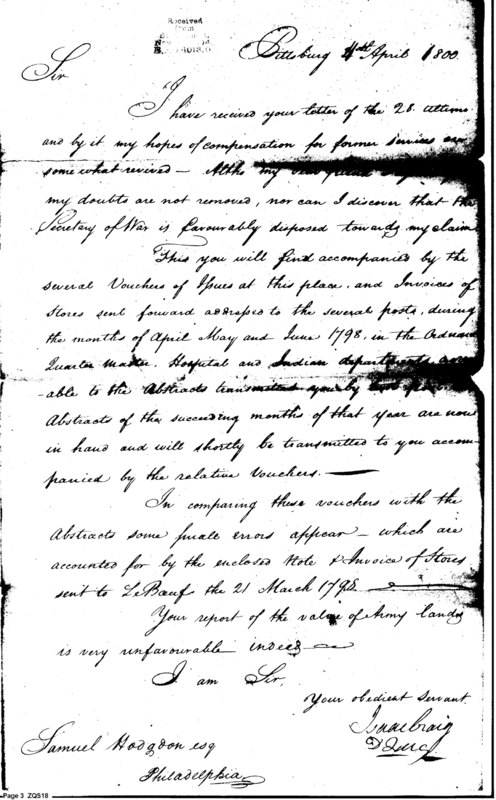 Received
from
Pittsburg 4th April 1800
Sir
I have received your letter of the 28. ultimo
and by it my hopes of compensation for former services are
some what revived — Altho my
my doubts are not removed, nor can I discover that the
Secretary of War is favourably disposed towards my claim
This you will find accompanied by the
several Vouchers of Issues at this place, and Invoices of
Stores sent forward addressed to the several posts, during
the months of April May and June 1798. in the Ordnance
Quarter Master, Hospital and Indian departments
-able to the Abstracts transmitted you by
Abstracts of the succeeding months of that year are now
in hand and will shortly be transmitted to you accom
panied by the relative Vouchers. —
In comparing these vouchers with the
Abstracts some small errors appear — which are
accounted for by the enclosed Note & Invoice of Stores
sent to LeBeuf the 21 March 1798. —
Your report of the value of Army lands
is very unfavourable indeed —
I am Sir,
Your obedient Servant
Isaac Craig
D Q M G
Samuel Hodgdon esq
Philadelphia
Page 3 ZQS18